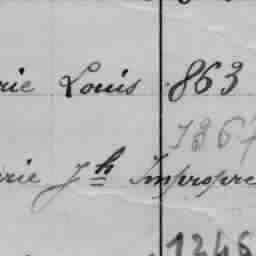 rie Louis 863
1367
rie Jh Impropre
1246